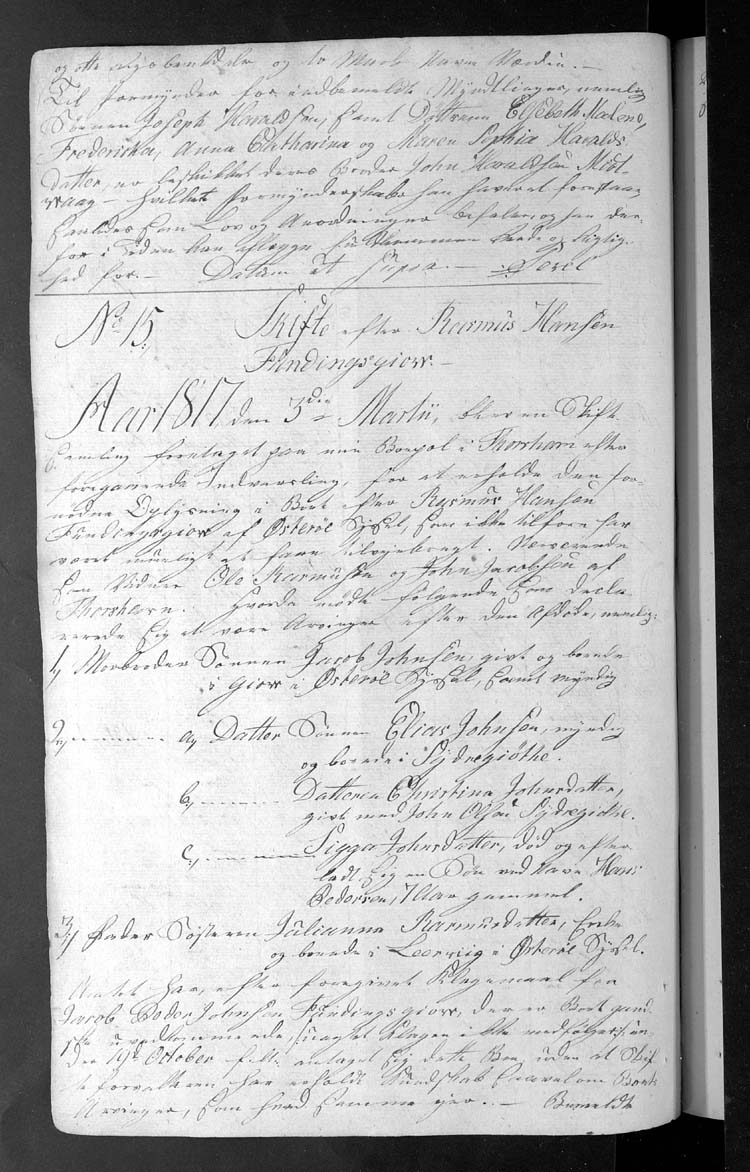 og otte og to Mark
Til Formynder for indbemeldte Myndtlinger, nemlig
Sønnen Joseph Haraldsen, samt Døttrene Elsebeth Malene,
Fredericka, Anna Catharina og Maren Sophia Haralds-
datter, er beskikket deres Broder John Haraldsen Midt-
vaag – hvilket Formynderskab han havde at forestaae
saaledes som Lov og Anordninger befaler, og han der-
for i Tiden kan aflægge Reede og Rigtig-
hed for. – Datum ut Supra. –
No 15, Skifte efter Rasmus Hansen
Fundingsgiow. –
Aar 1817 den 3die Martii, blev en Skift
Samling foretaget paa min Boepæl i Thorshavn efter
foregaaende Indvarsling, for at erholde den for-
nødne Oplysning i Boet efter Rasmus Hansen
Fundingsgiow af Østerøe Syssel, som ikke tilforn har
været mueligt at faae tilvejebragt. Nærværende
som Vidner Ole Rasmusen og John Jacobsen af
Thorshavn. Hvorda mødte følgende som decla-
rerede sig at være Arvinger efter den Afdøde, nemlig:
1, Morbroder Sønnen Jacob Johnsen, givt og boende
i Giow i Østerøe Syssel, samt myndig
2, a, Datter Sønnen Elias Johnsen, myndig
og boende i Sydregiøthe.
b, Datteren Christina Johnsdatter,
givt med John Olsen Sydregiøthe.
c, Sigga Johnsdatter, død og efter
ladt sig en Søn ved Navn Hans
Pedersen, 7 Aar gammel.
3, Fader Søsteren Julianna Rasmusdatter, Enke
og boende i Leerviig i Østerøe Syssel.
Amtet har, efter foregivet Klagemaal fra
Jacob Peder Johnsen Fundingsgiow, der er Boet gand-
ske uvedkommende, Klagen ikke medfølger, un-
der 19de October antaget sig dette Boe, uden at Skif-
teforvalteren har erholdt Kundskab Boets
Arvinger, som hvad samme ejer. – Bemeldte